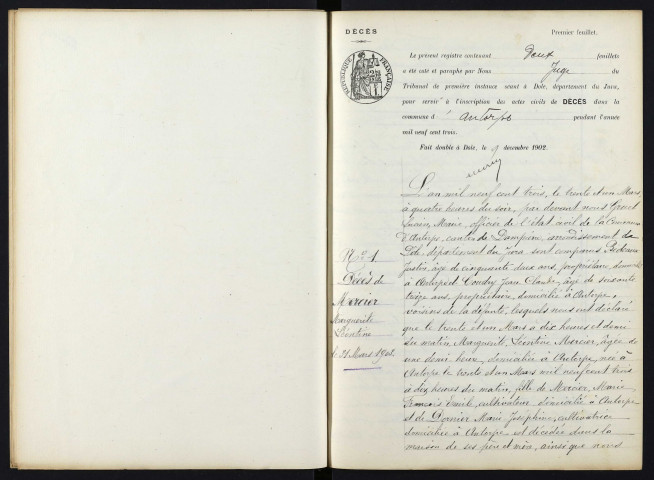 DÉCÈS
Premier feuillet.
RÉPUBLIQUE FRANÇAISE
Le présent registre contenant Deux feuillets
a été coté et paraphé par Nous Juge du
Tribunal de première instance séant à Dole, département du Jura,
pour servir à l'inscription des actes civils de DÉCÈS dans la
commune d'Antorpe pendant l'année
mil neuf cent trois.
Fait double à Dole, le 9 décembre 1902.
N° 1
Décès de
Mercier
Marguerite
Léontine
le 31 Mars 190
L'an mil neuf cent trois, le trente et un Mars
à quatre heures du soir, par devant nous
Marie, officier de l'état civil de la Commune
d'Antorpe, canton de Dampierre, arrondissement de
Dole, département du Jura sont comparus
Justin, âgé de cinquante deux ans, propriétaire, domicilié
à Antorpe et Jean Claude, âgé de soixante
treize ans, propriétaire, domicilié à Antorpe,
voisins de la défunte, lesquels nous ont déclaré
que le trente et un Mars à dix heures et demi
du matin, Marguerite Léontine Mercier, âgée de
une demi heure, domiciliée à Antorpe, née à
Antorpe le trente et un Mars mil neuf cent trois
à dix heures du matin, fille de Mercier Marie
François Emile, cultivateur domicilié à Antorpe
et de Dornier Marie Joséphine, cultivatrice
domiciliée à Antorpe est décédée dans la
maison de ses père et mère, ainsi que nous